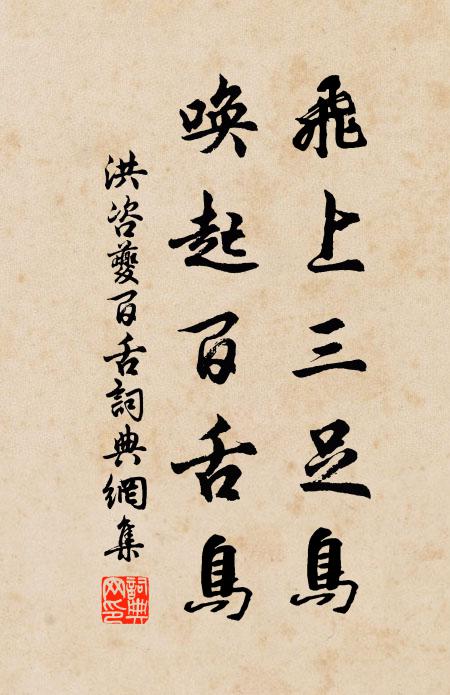 飛上三足烏
喚起百舌鳥
洪咨夔百舌詞典網集
詞典
网印